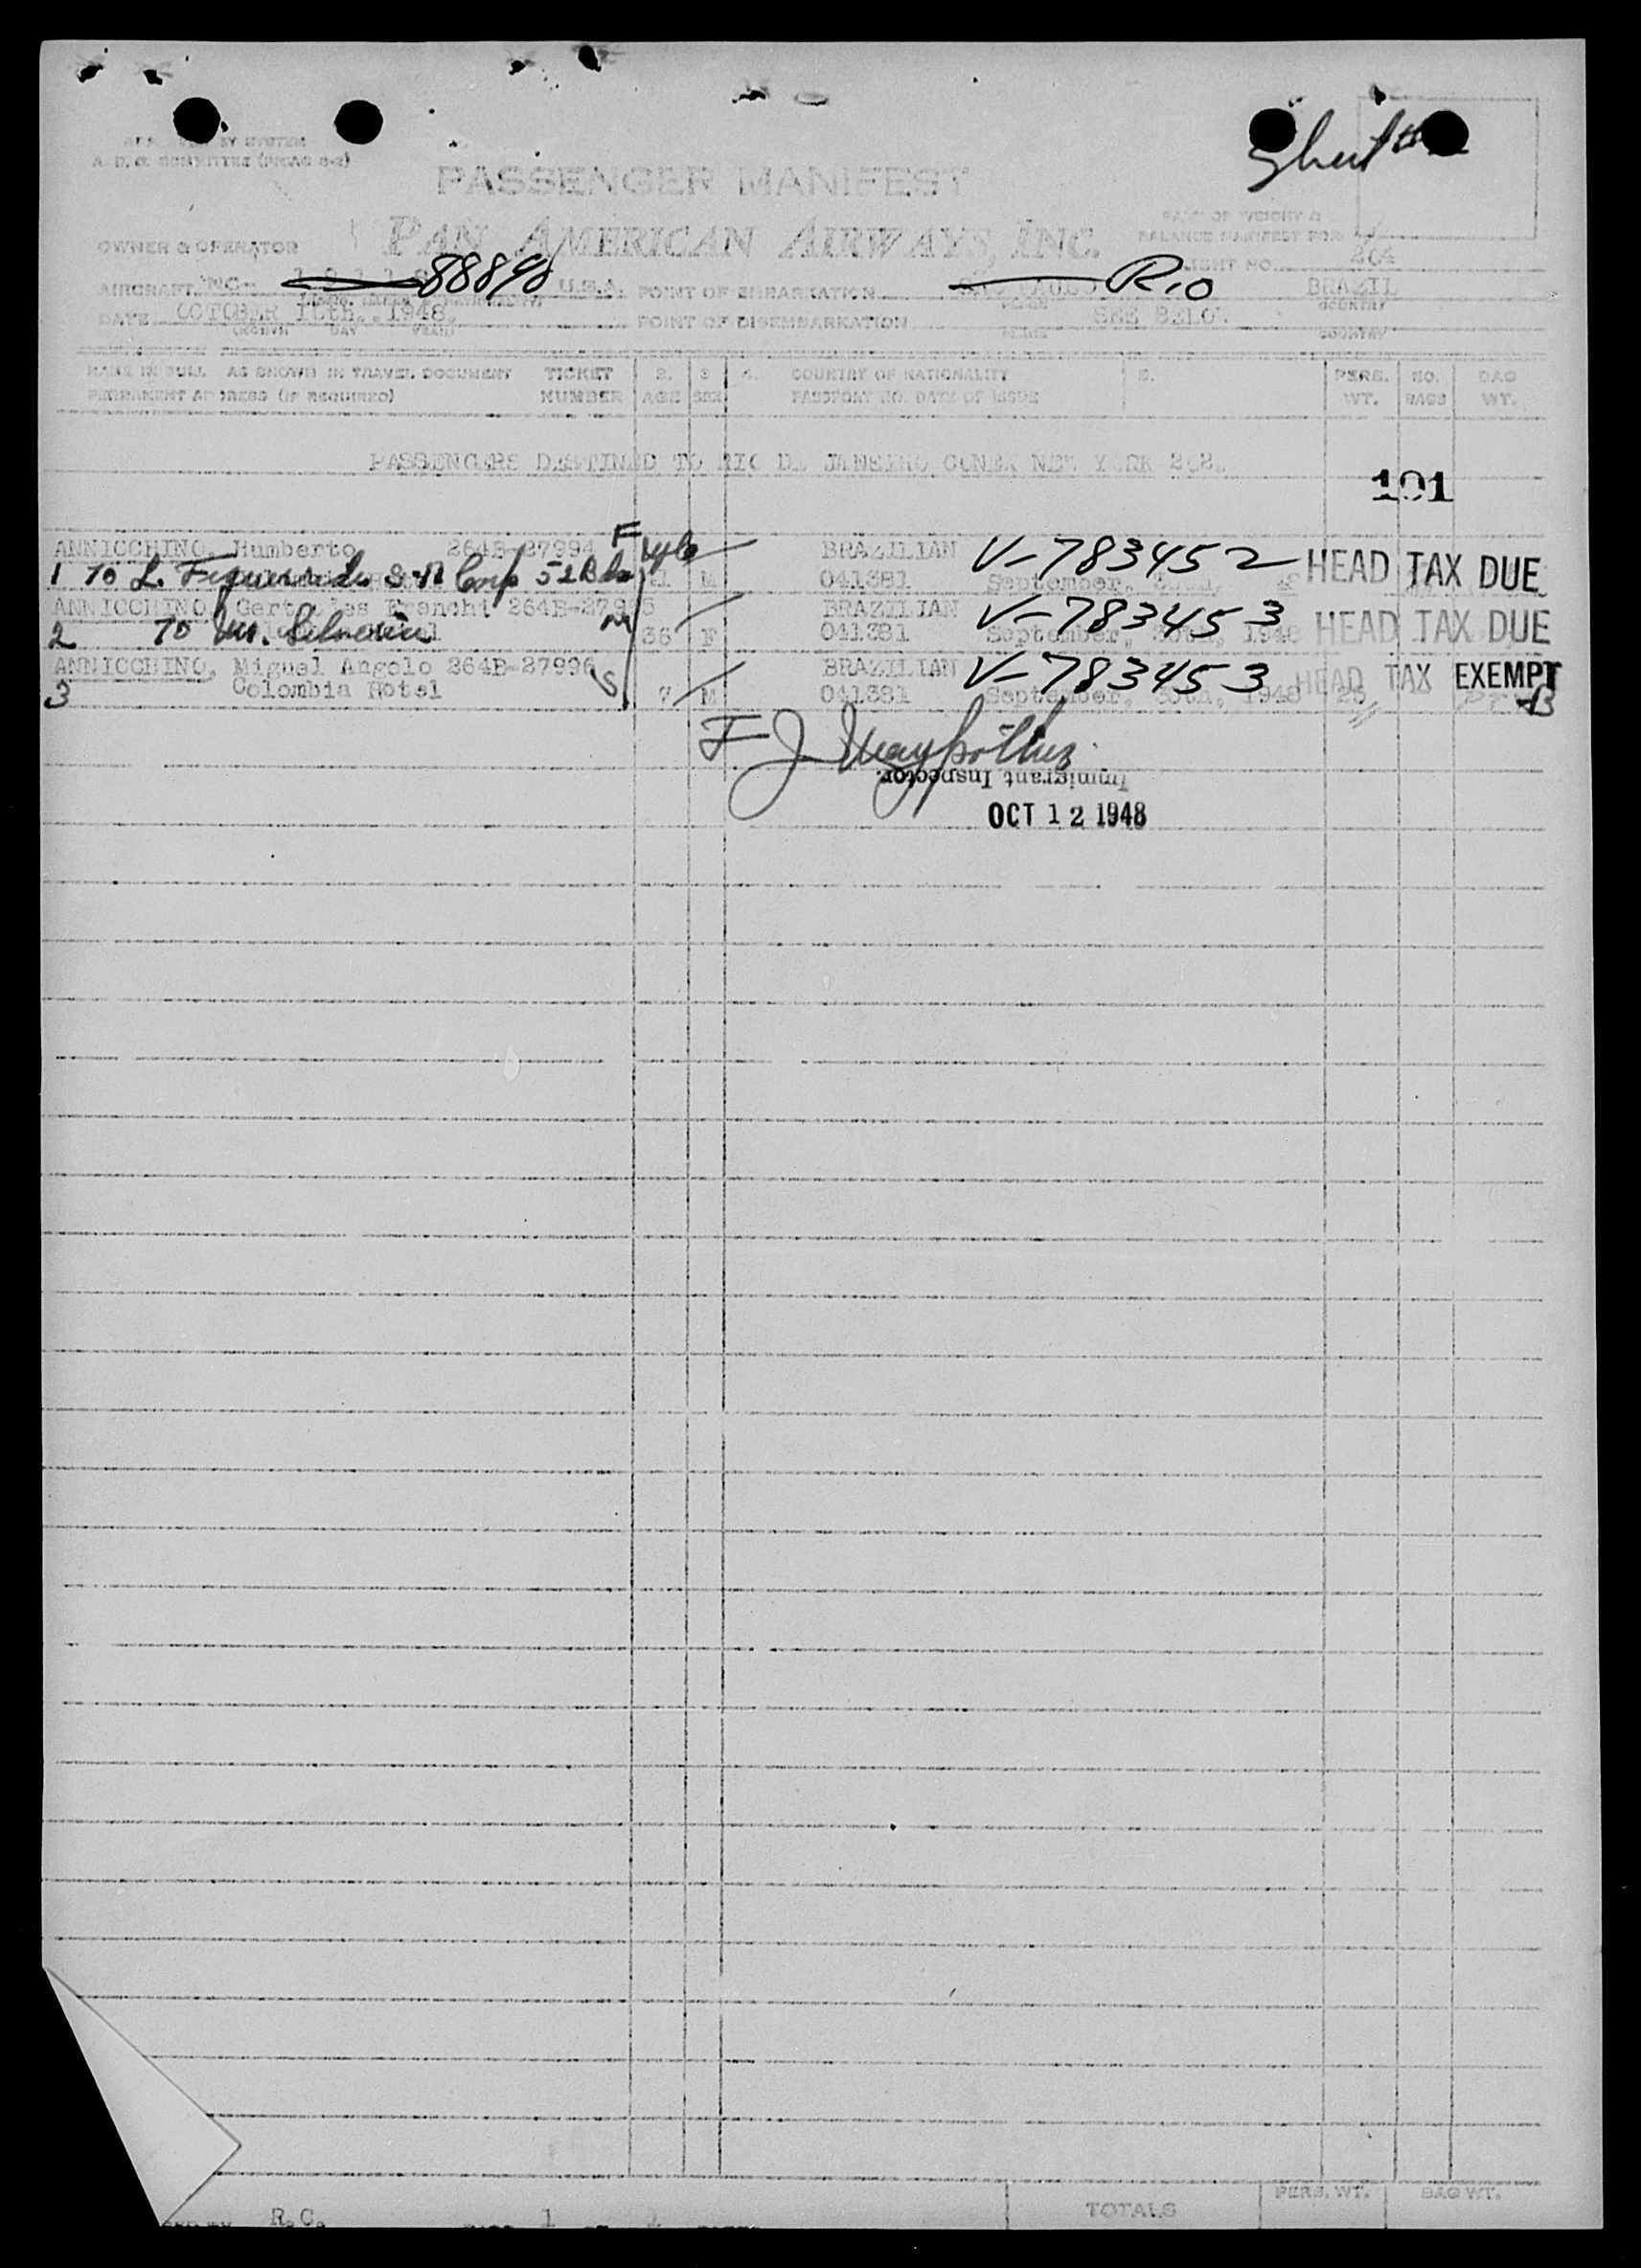 BY SYSTEM
PASSENGER MANIFEST
PAN AMERICAN AIRWAYS, INC.
PART OF WEIGHT &
BALANCE MANIFEST FOR
OWNER & OPERATOR
FLIGHT NO. 204
AIRCRAFT NC- 88840 U.S.A. POINT OF EMBARKATION SAO PAULO Rio BRAZIL
PLACE COUNTRY
DATE OCTOBER 1948. POINT OF DISEMBARKATION SEE BELOW
MONTH DAY YEAR PLACE COUNTRY
NAME IN FULL AS SHOWN IN TRAVEL DOCUMENT TICKET 2. 3 4. COUNTRY OF NATIONALITY 5. PERS. NO. BAG
PERMANENT ADDRESS (IF REQUIRED) NUMBER AGE SEX PASSPORT NO. DATE OF ISSUE WT. BAGS WT.
PASSENGERS DESTINED TO RIO DE JANEIRO CONN. NEW YORK 202.
101
ANNICCHINO, Humberto 264B-27994 F BRAZILIAN V-783452 HEAD TAX DUE
1 TO L. Corp 52 M 041381 September,
ANNICCHINO, Gertrudes Franchi 264B-27995 BRAZILIAN V-783453 HEAD TAX DUE
2 TO 36 F 041381 September, 30th, 1948
ANNICCHINO, Miguel Angelo 264B-27996 BRAZILIAN V-783453 HEAD TAX EXEMPT
3 Colombia Hotel S 7 M 041381 September, 30th, 1948 25
F J
Immigrant Inspector.
OCT 12 1948
R.C. 1
TOTALS PERS. WT. BAG WT.